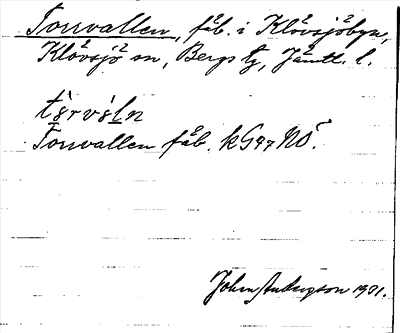 Torrvallen, fäb. i Klövsjöbyn,
Klövsjö sn, Bergs tg, Jämtl. l.
tòrvàln
Torrvallen fäb. kG97 NO.
Johan Anderson 1931.